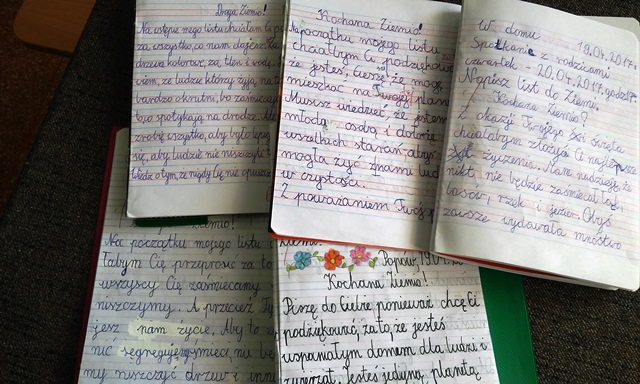 Droga Ziemio!
Na wstępie mego listu chciałam Ci po
za wszystko, co nam dajesz. Za
drzewa kolorowe, za tlen i wodę.
wiem, że ludzie którzy żyją na
bardzo okrutni, bo zaśmiecają
to co spotykają na drodze. Ale
zrobię wszystko, aby było lepiej
się, aby ludzie nie niszczyli
wiedz o tym, że nigdy Cię nie opuszczę
Kochana Ziemio!
Na początku mojego listu
chciałbym Ci podziękować
że jesteś, cieszę, że mogę
mieszkać na Twojej plane
Musisz wiedzieć, że jestem
młodą osobą i dołożę
wszelkich starań, abyś
mogła żyć z nami lud
w czystości.
Z poważaniem Twój
W domu 19.04.2017r.
Spotkanie z rodzicami
czwartek 20.04.2017
Napisz list do Ziemi.
Kochana Ziemio!
Z okazji Twojego święta
chciałabym złożyć Ci najlepsze
życzenia. Mam nadzieję, że
nikt nie będzie zaśmiecał łąk,
lasów, rzek i jezior. Obyś
zawsze wydawała mnóstwo
Ziemio!
Na początku mojego listu
łabym Cię przeprosić za to
wszyscy Cię zaśmiecamy
niszczymy. A przecież Ty
jesz nam życie. Aby to
nić segregujemy śmieci, nie
my niszczyć drzew i inn
Popowo, 19.04.20
Kochana Ziemio!
Piszę do Ciebie ponieważ chcę Ci
podziękować, za to, że jesteś
wspaniałym domem dla ludzi i
zwierząt. Jesteś jedyną planetą